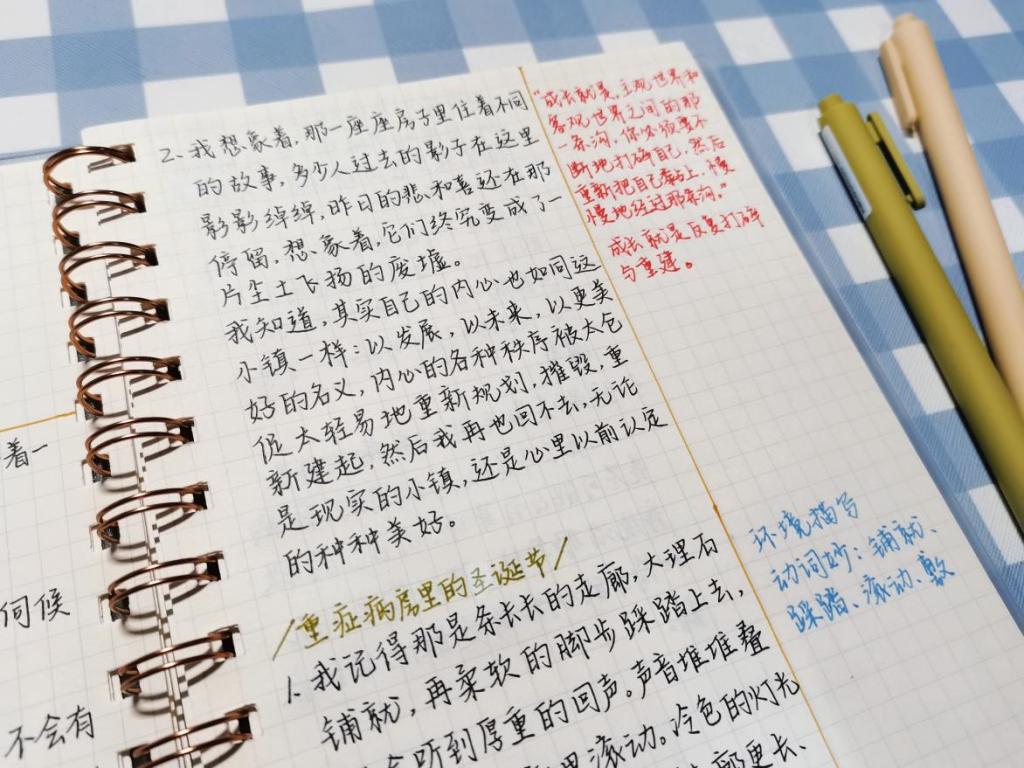 2、我想象着,那一座座房子里住着不同
的故事,多少人过去的影子在这里
影影绰绰,昨日的悲和喜还在那
停留,想象着,它们终究变成了一
片尘土飞扬的废墟。
我知道,其实自己的内心也如同这
小镇一样:以发展,以未来,以更美
好的名义,内心的各种秩序被太仓
促太轻易地重新规划,摧毁,重
新建起,然后我再也回不去,无论
是现实的小镇,还是心里以前认定
的种种美好。
/重症病房里的圣诞节/
1、我记得那是条长长的走廊,大理石
铺就,再柔软的脚步踩踏上去,
会听到厚重的回声。声音堆堆叠
里滚动。冷色的灯光
廊更长、
"成长就是,主观世界和
客观世界之间的那
一条沟,你必须要不
断地打碎自己,然后
重新把自己黏上,慢
慢地经过那条沟。"
成长就是反复打碎
与重建。
环境描写
动词妙:铺就、
踩踏、滚动、敷
着一
伺候
不会有